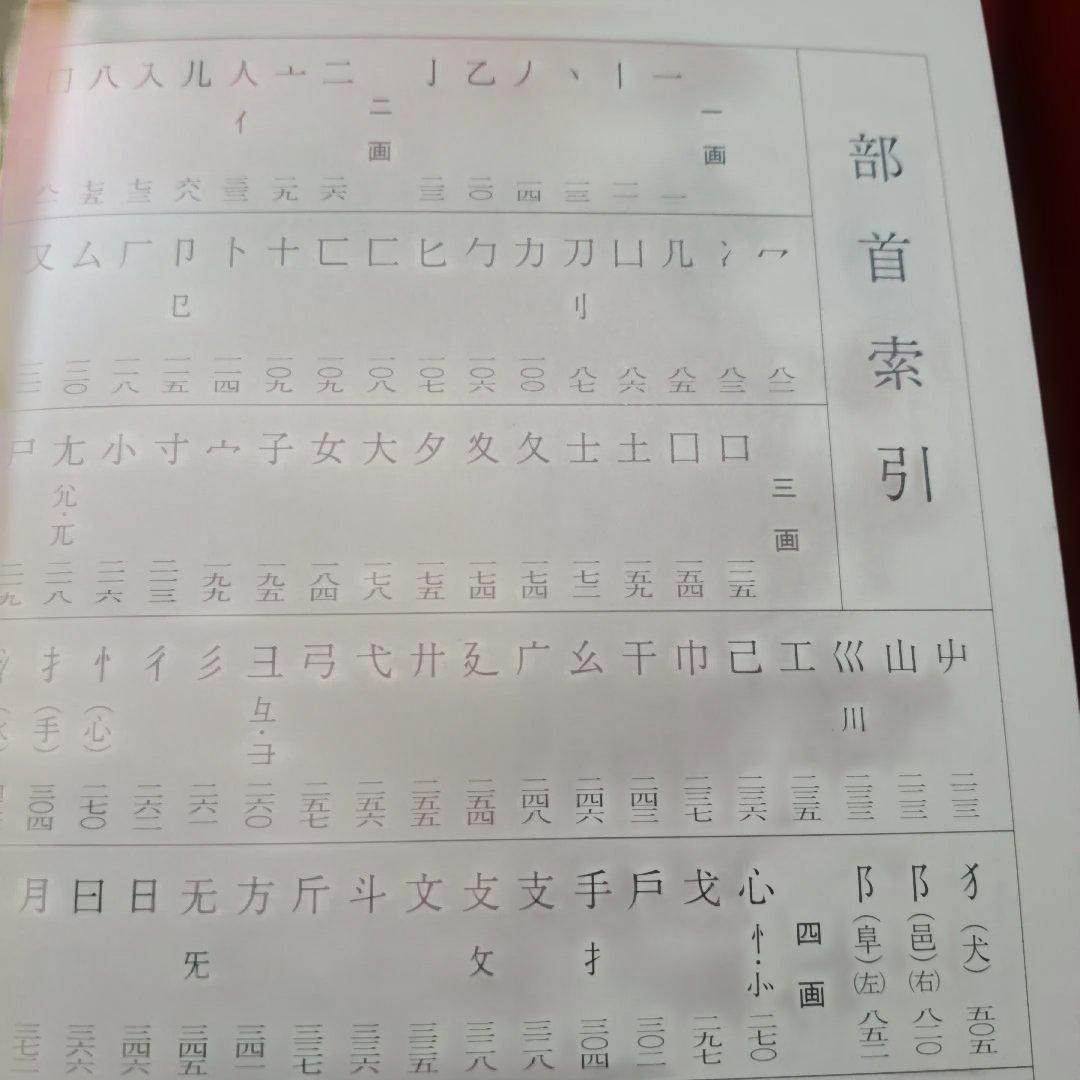 部首索引
一画
一 一
丨
丶
丿 一四
乙 二〇
亅 二三
二画
二 二六
亠 二九
人 亻 三三
儿
入 七三
八 七五
冂
冖 八二
冫 八三
几 八五
凵 八六
刀 刂 八七
力 一〇〇
勹 一〇六
匕 一〇七
匚 一〇八
匸 一〇九
十 一〇九
卜 一一四
卩 㔾 一一五
厂 一一八
厶 一二〇
又
三画
口 一二五
囗 一五四
土 一五九
士 一七二
夂 一七四
夊 一七四
夕 一七五
大 一七八
女 一八四
子 一九五
宀 一九九
寸 二一三
小 二一六
尢 尣·兀 二一八
尸 二一九
屮
山
巛 川 二三三
工 二三五
己 二三六
巾 二三七
干 二四三
幺 二四六
广 二四八
廴 二五四
廾 二五五
弋 二五六
弓 二五七
彐 彑·⺕ 二六〇
彡 二六一
彳 二六二
忄(心) 二七〇
扌(手) 三〇四
犭(犬) 五〇五
阝(邑)(右) 八二〇
阝(阜)(左) 八五二
四画
心 忄·㣺 二七〇
戈 二九七
戶 三〇二
手 扌 三〇四
支 三二八
攴 攵 三二八
文 三三五
斗 三三六
斤 三三七
方 三四一
无 旡 三四五
日 三四六
曰 三六六
月 三七二